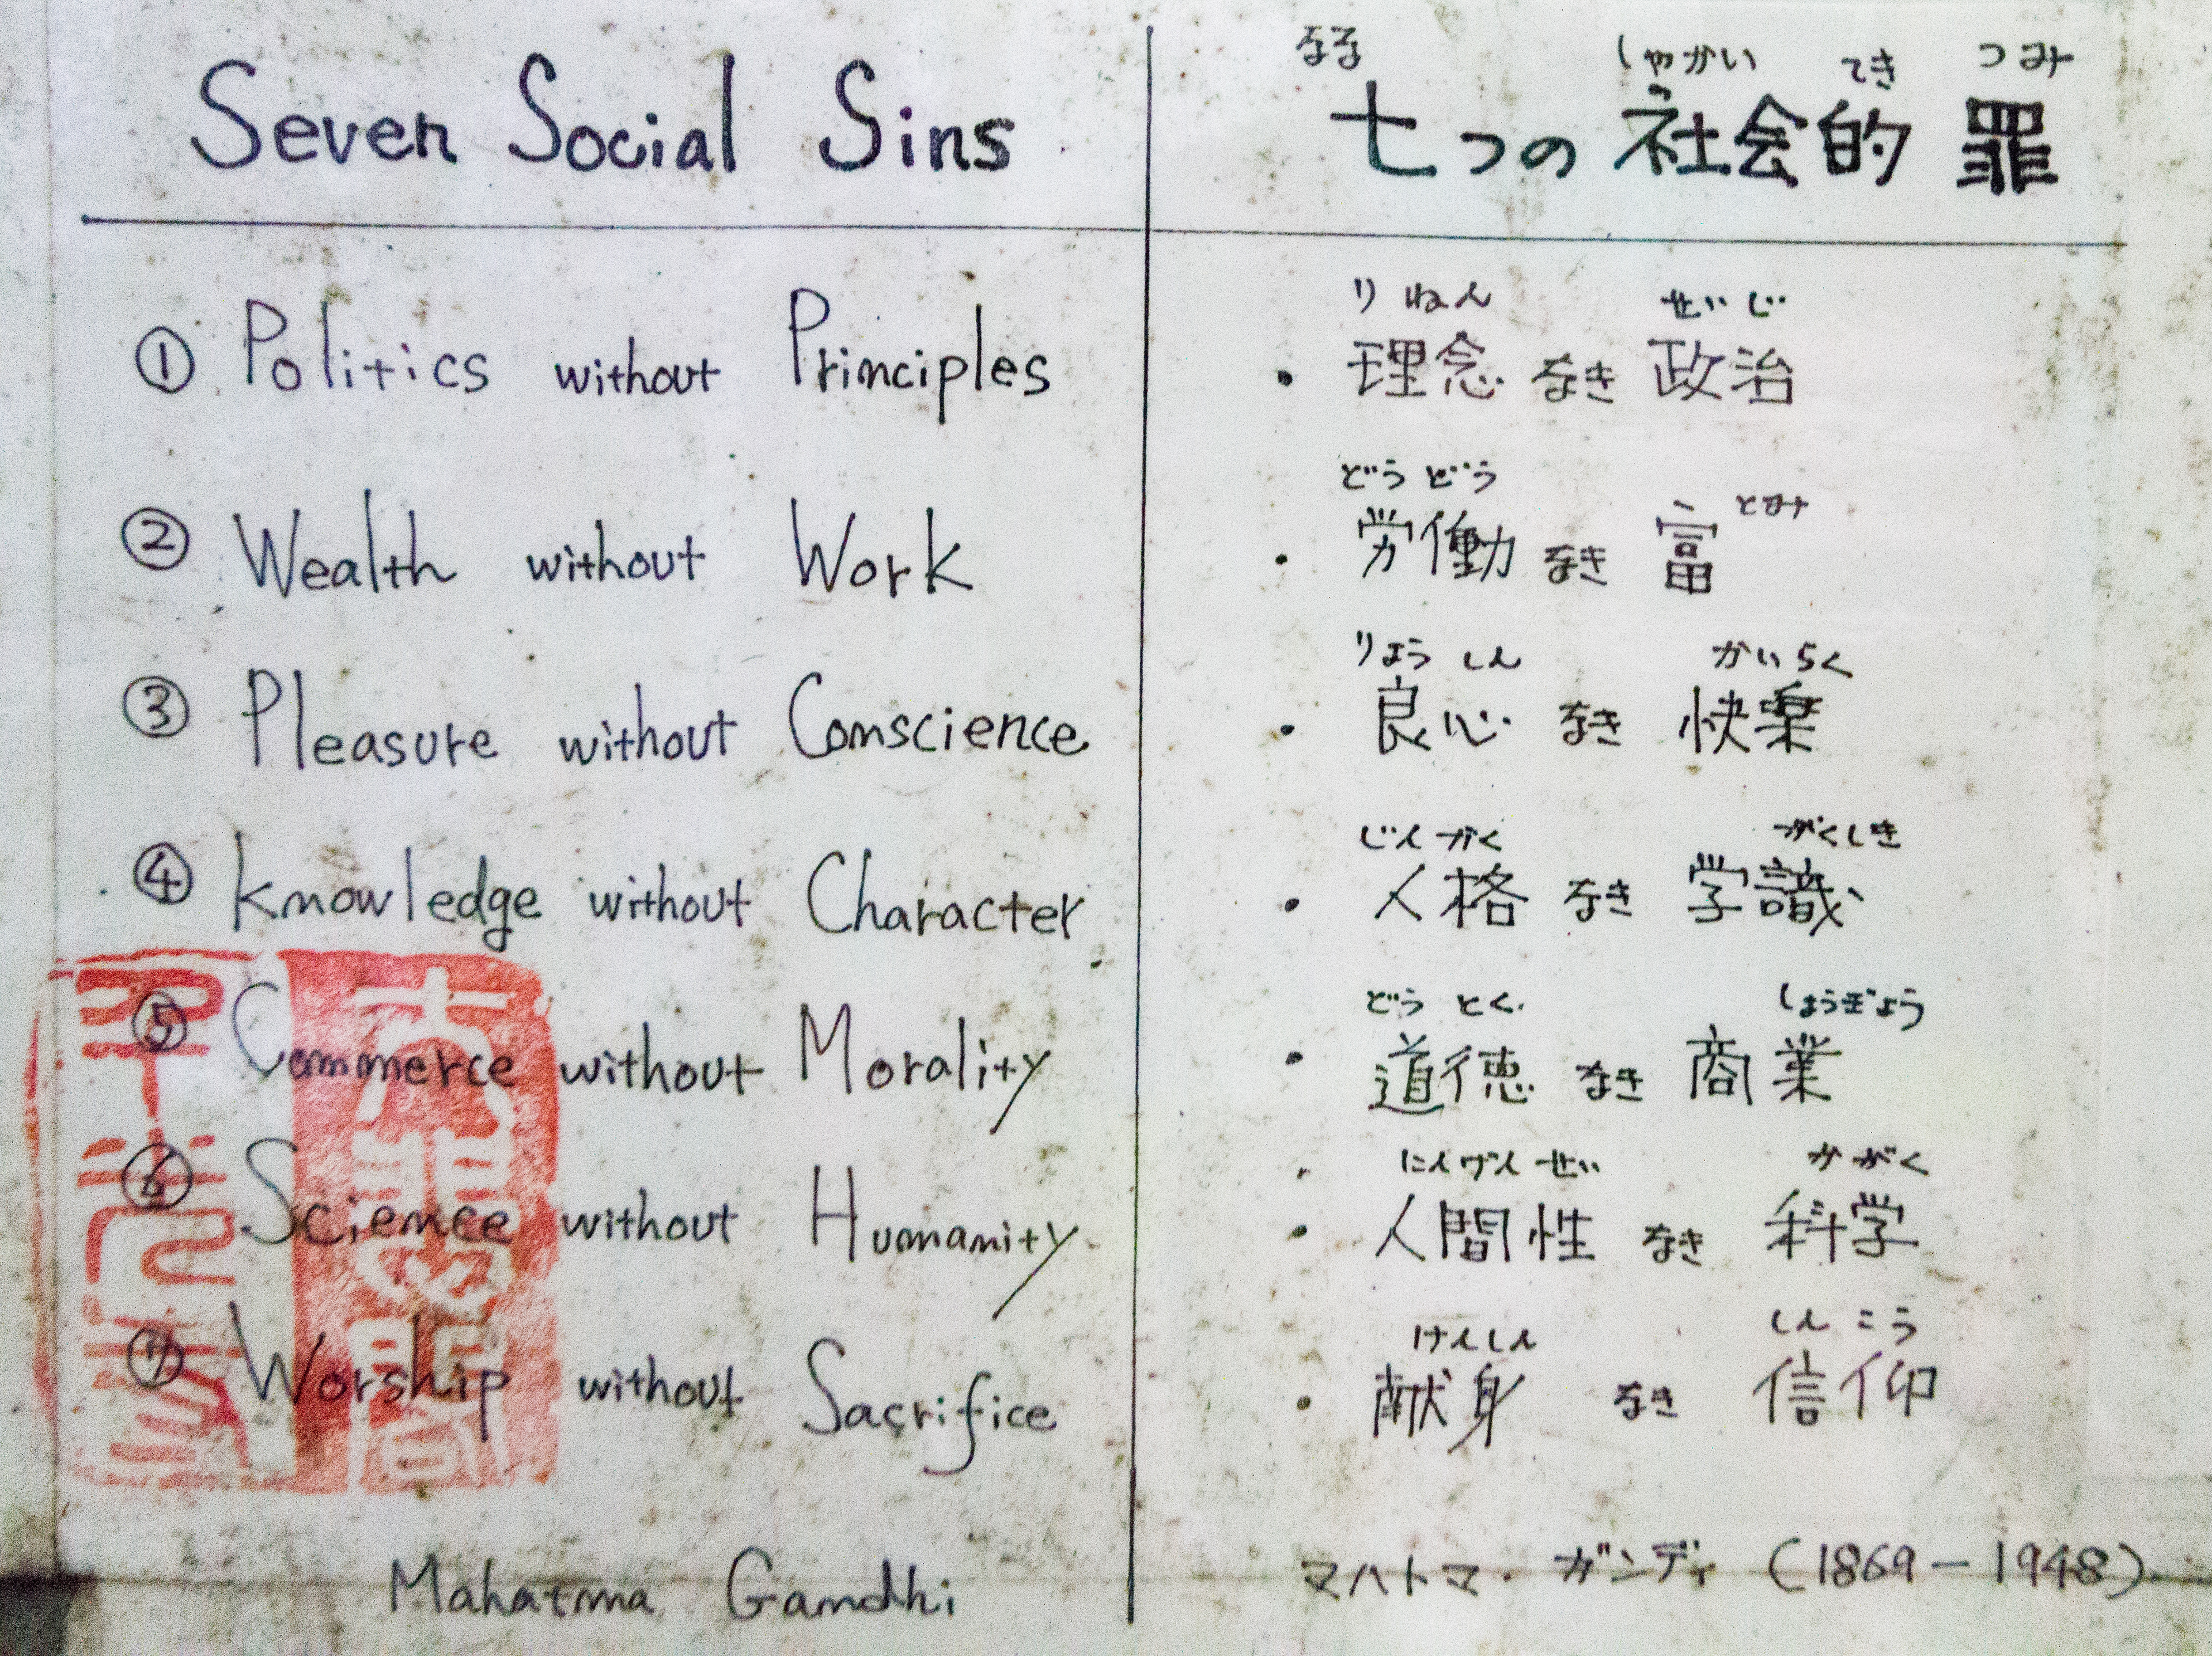 Seven Social Sins
① Politics without Principles
② Wealth without Work
③ Pleasure without Conscience
④ Knowledge without Character
⑤ Commerce without Morality
⑥ Science without Humanity
⑦ Worship without Sacrifice
Mahatma Gandhi
なな しゃかい てき つみ
七つの 社会的 罪
りねん せいじ
・ 理念 なき 政治
どうどう とみ
・ 労働 なき 富
りょうしん かいらく
・ 良心 なき 快楽
じんかく がくしき
・ 人格 なき 学識
どうとく しょうぎょう
・ 道徳 なき 商業
にんげんせい かがく
・ 人間性 なき 科学
けんしん しんこう
・ 献身 なき 信仰
マハトマ・ガンディ (1869-1948)
大悲閣
千光寺